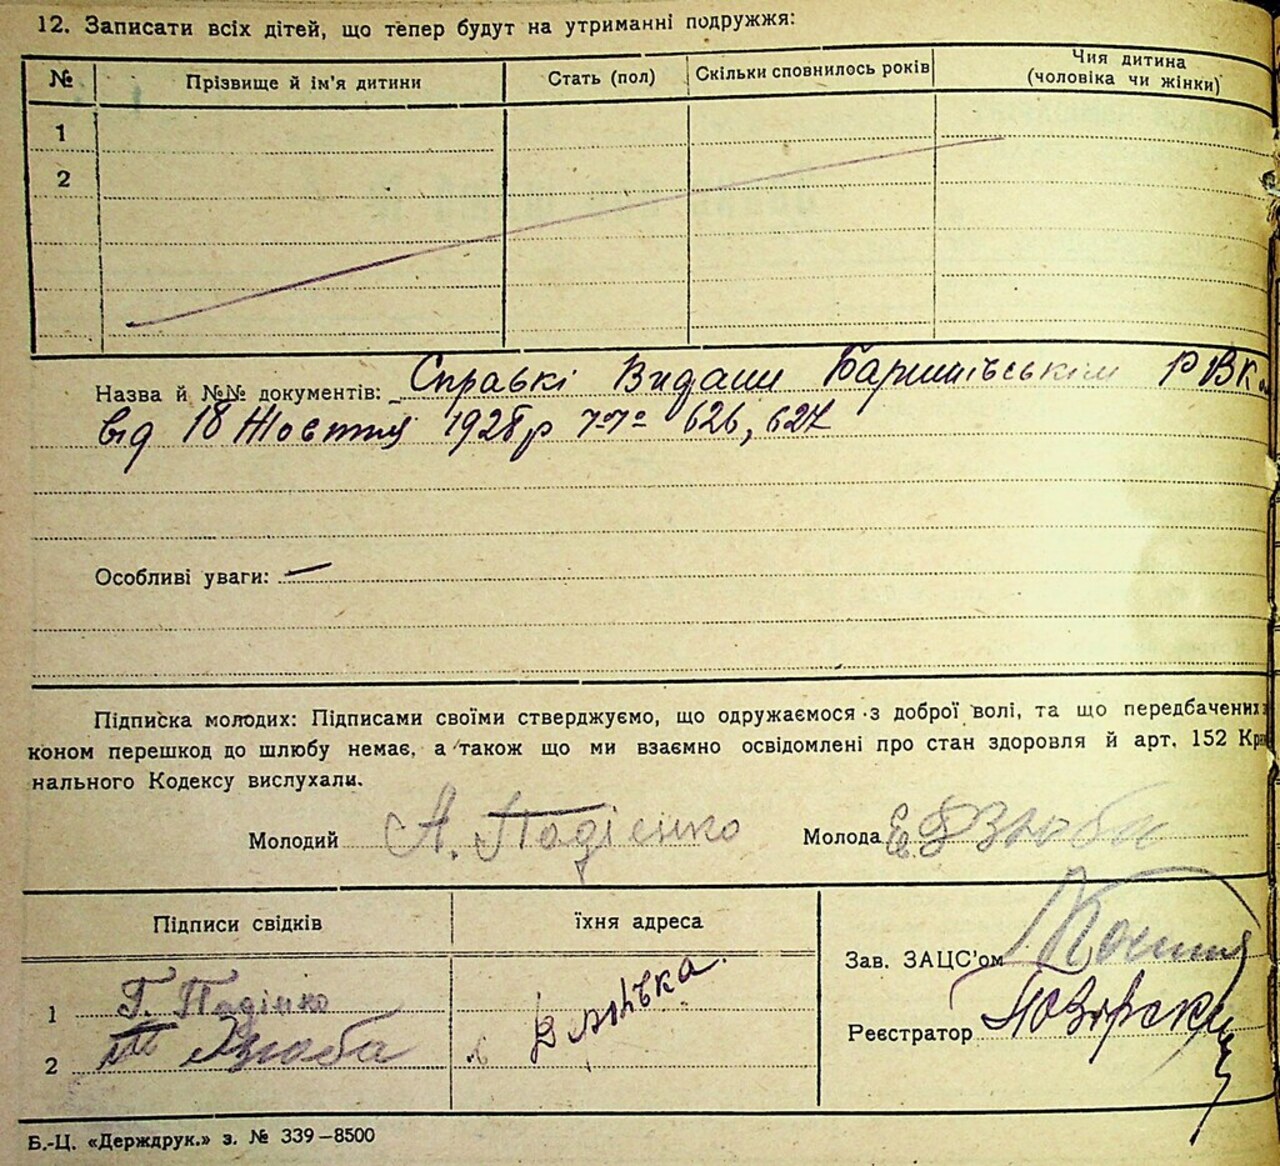 12. Записати всіх дітей, що тепер будут на утриманні подружжя:
№ Прізвище й ім'я дитини Стать (пол) Скільки сповнилось років Чия дитина (чоловіка чи жінки)
1
2
Назва й №№ документів: Справкі Видани Баришівським РВК
від 18 Жовтня 1928 р 626, 627
Особливі уваги: —
Підписка молодих: Підписами своїми стверджуємо, що одружаємося з доброї волі, та що передбачених
коном перешкод до шлюбу немає, а також що ми взаємно освідомлені про стан здоровля й арт. 152 Кри
нального Кодексу вислухали.
Молодий А. Подієнко Молода Є. Дзюба
Підписи свідків їхня адреса
Зав. ЗАЦС'ом
1 Г. Подінко
Реєстратор
2 Дзюба
Б.-Ц. «Держдрук.» з. № 339—8500